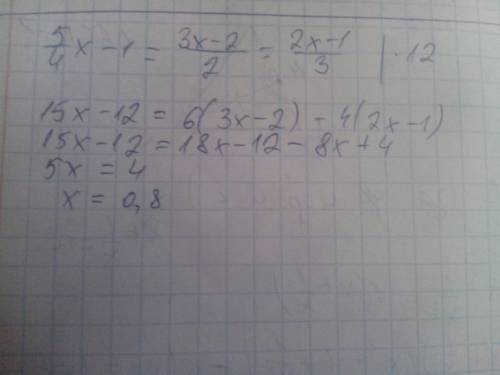 5/4 x − 1 = (3x−2)/2 = (2x−1)/3 | · 12
15x − 12 = 6(3x−2) − 4(2x−1)
15x − 12 = 18x − 12 − 8x + 4
5x = 4
x = 0,8